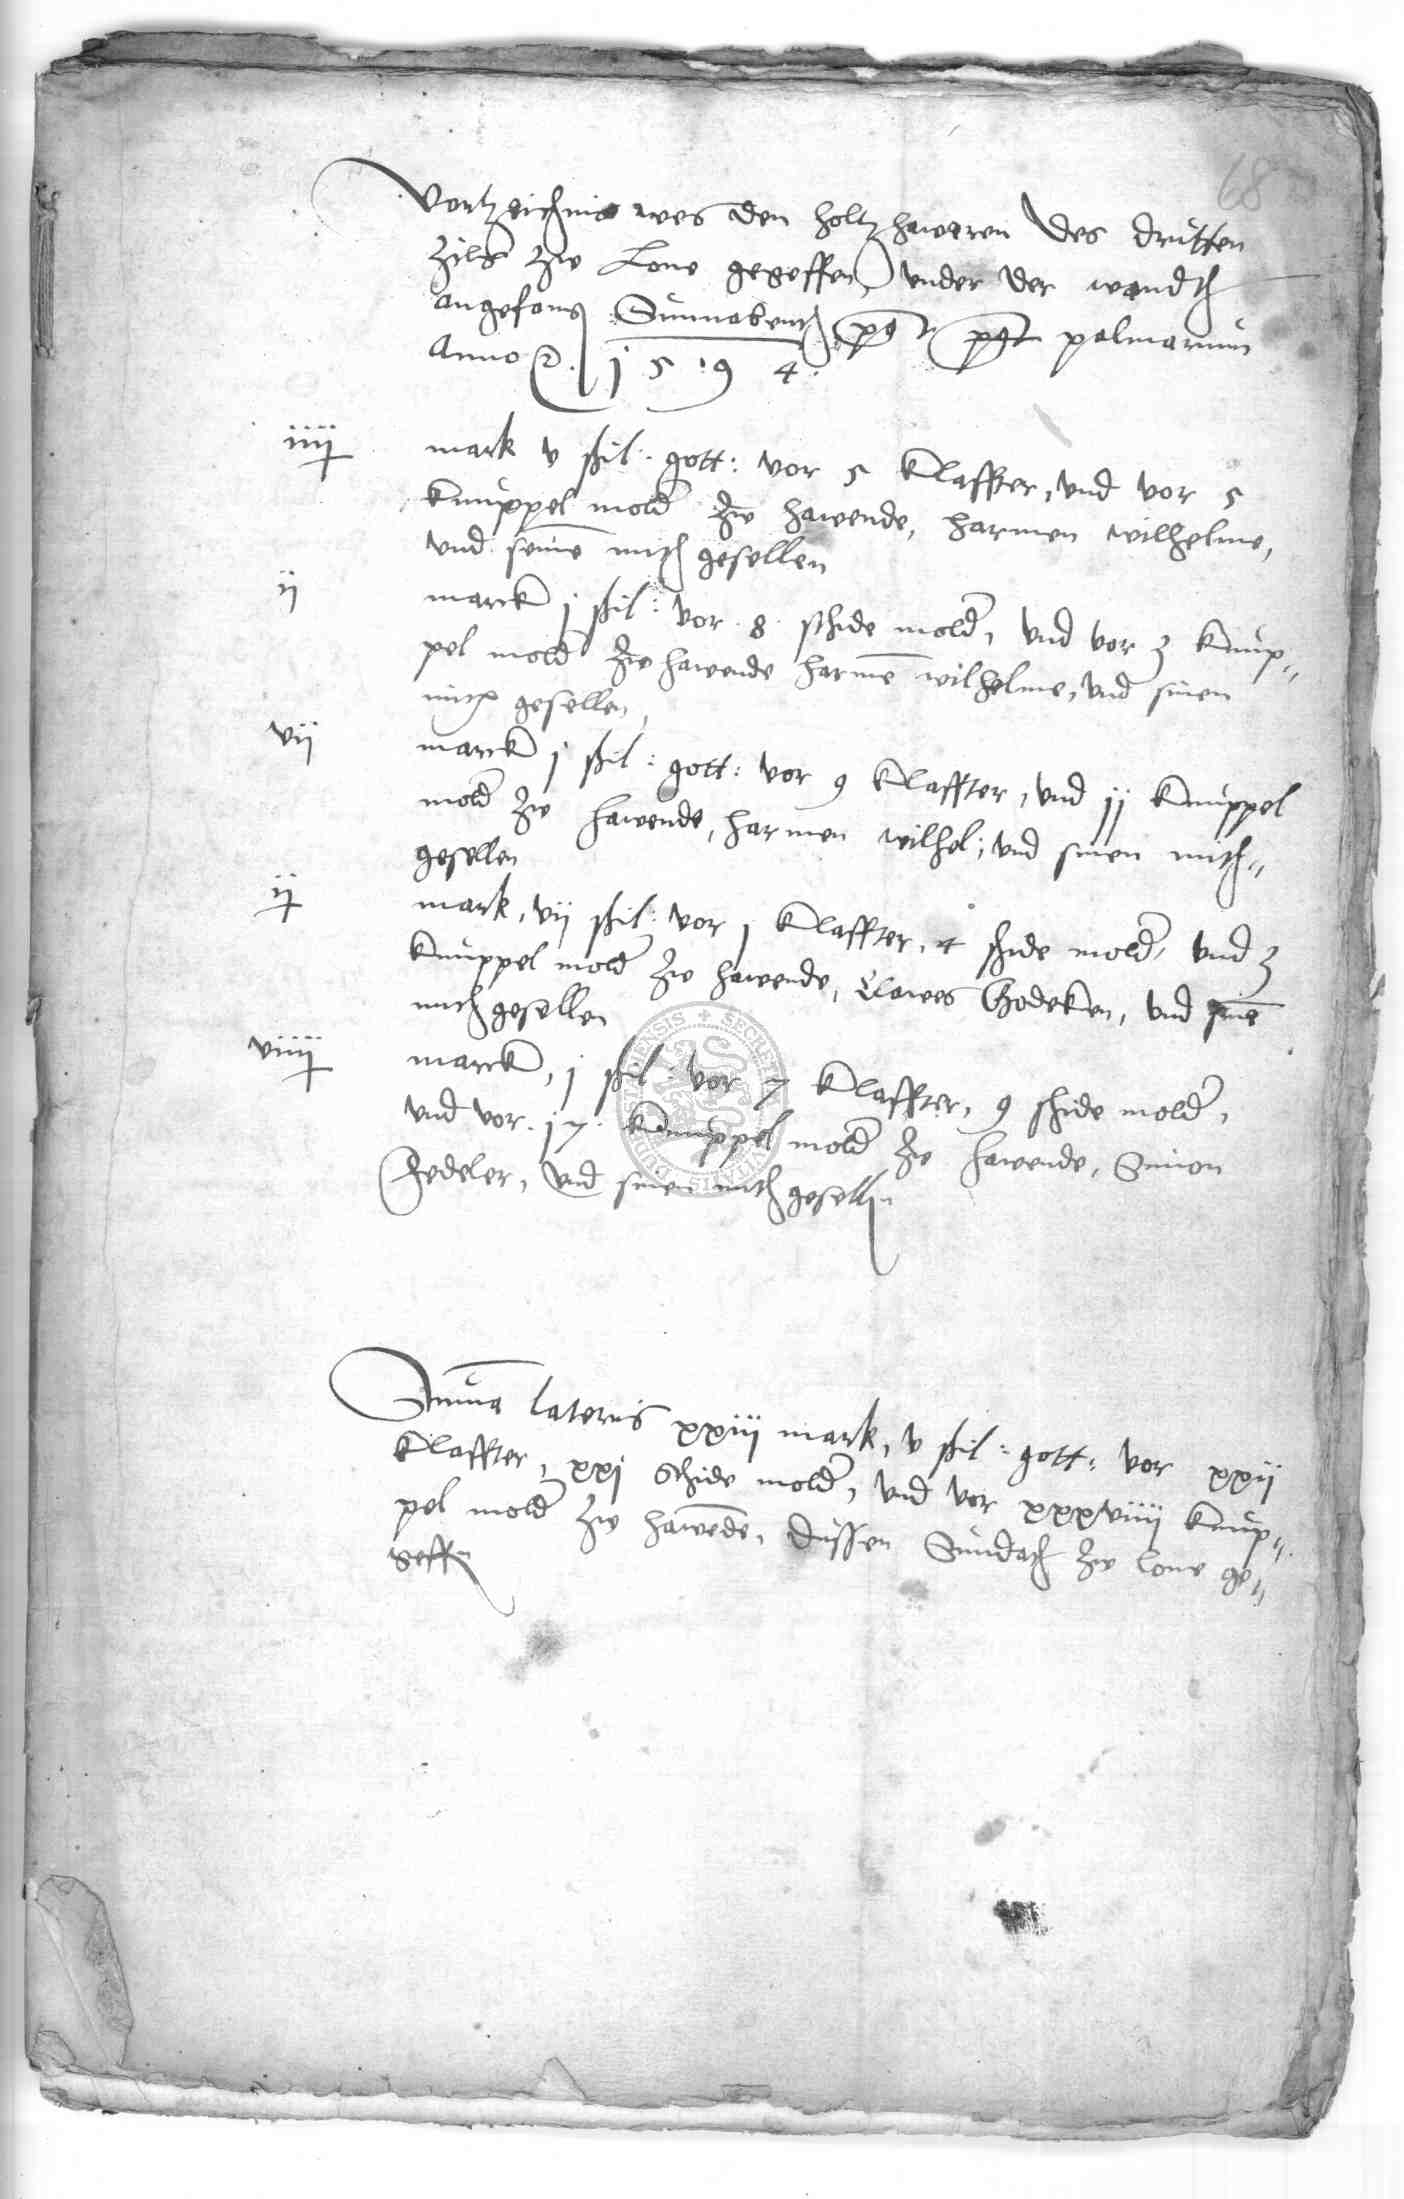 68
Vortzeichnis wes den holtzhaweren des dritten
Zilß zw Lone gegeffen, vnder der wandth
angefang Sunnabent post palmarum
Anno 1594
iiii† mark v ßil: gott: vor 5 Klaffter, vnd vor 5
Knuppel mold zw hawende, harmen wilhelme,
vnd seine mith gesellen
ii marck j ßil: vor 8 schide mold, vnd vor 3 Knup„
pel mold zw hawende harme wilhelme, vnd sinen
mith gesellen,
vii marck j ßil: gott: vor 9 Klaffter, vnd jj Knuppel
mold zw hawende, harmen wilhel: vnd sinen mith„
gesellen
ii† mark, vii ßil: vor j Klaffter, 4 schide mold, vnd 3
Knuppel mold zw hawende, Clawes Godeken, vnd sine
mith gesellen
viiii† marck, j ßil: vor 7 Klaffter, 9 schide mold,
vnd vor j7 Knuppel mold zw hawende, Simon
Fedeler, vnd sinen mith gesellen
Summa lateris xxiiii mark, v ßil: gott: vor xxii
Klaffter, xxj Schide mold, vnd vor xxxviiii Knup„
pel mold zw hawende, dussen Sundach zw lone ge„
geffen
SECRET